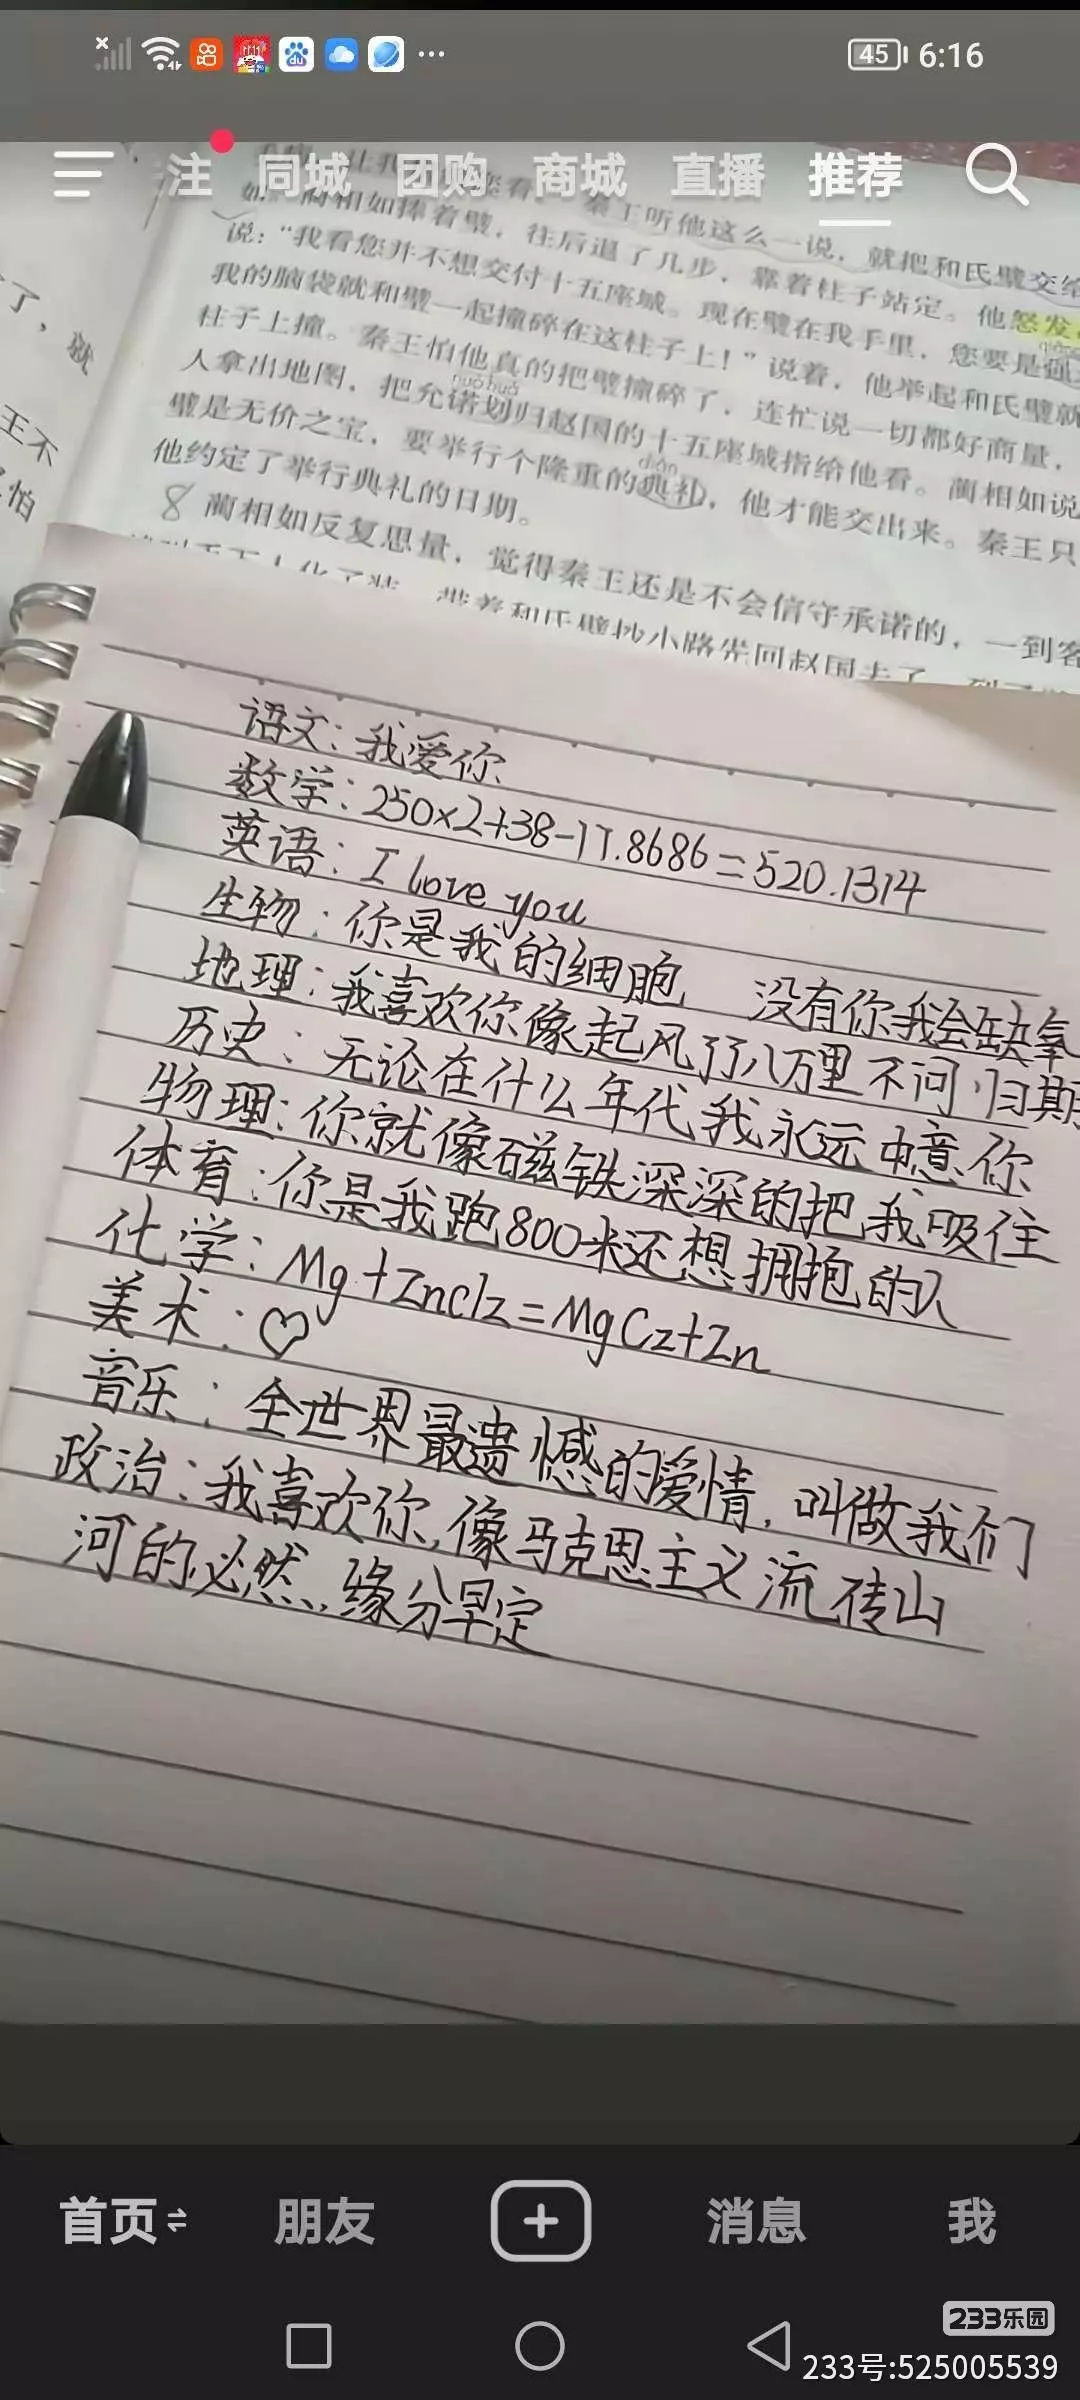 45 6:16
注 同城 团购 商城 直播 推荐
秦王听他这么一说，就把和氏璧交给
蔺相如捧着璧，往后退了几步，靠着柱子站定。他怒发
说：“我看您并不想交付十五座城。现在璧在我手里，您要是强
我的脑袋就和璧一起撞碎在这柱子上！”说着，他举起和氏璧就
柱子上撞。秦王怕他真的把璧撞碎了，连忙说一切都好商量，
人拿出地图，把允诺划归赵国的十五座城指给他看。蔺相如说
璧是无价之宝，要举行个隆重的典礼，他才能交出来。秦王只
他约定了举行典礼的日期。
8 蔺相如反复思量，觉得秦王还是不会信守承诺的，一到客
带着和氏璧抄小路先回赵国去了
了，就
王不
怕
nuò huà
diǎn
语文：我爱你
数学：250×2+38-17.8686=520.1314
英语：I love you
生物：你是我的细胞，没有你我会缺氧
地理：我喜欢你像起风了八万里不问归期
历史：无论在什么年代我永远中意你
物理：你就像磁铁深深的把我吸住
体育：你是我跑800米还想拥抱的人
化学：Mg+Zncl2=MgC2+Zn
美术：♡
音乐：全世界最遗憾的爱情，叫做我们
政治：我喜欢你，像马克思主义流砖山
河的必然，缘分早定
首页 朋友 消息 我
233乐园
233号:525005539